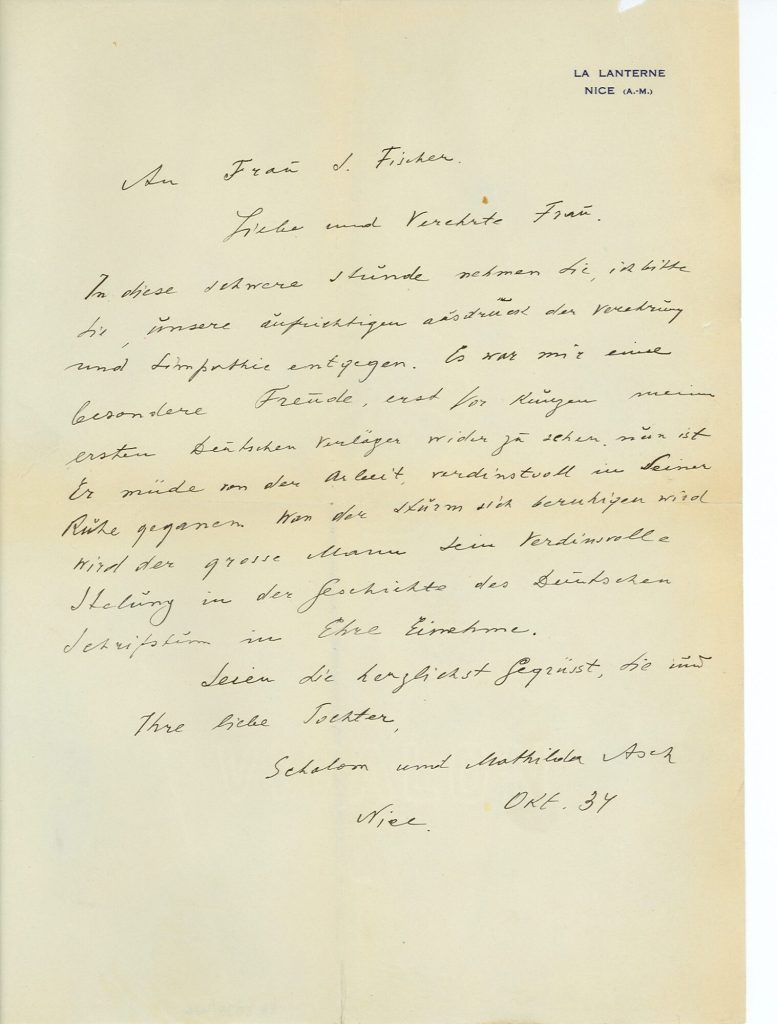 LA LANTERNE
NICE (A.-M.)
An Frau S. Fischer.
Liebe und Verehrte Frau.
In diese schwere Stunde nehmen Sie, ich bitte
Sie, unsere aufrichtigen ausdrück der Verehrung
und Simpathie entgegen. Es war mir eine
besondere Freude, erst vor Kurzen meinen
ersten Deutschen Verläger wider zu sehen. nun ist
Er müde von der Arbeit, verdinstvoll in Seiner
Ruhe geganen. Wan der Sturm sich beruhigen wird
wird der grosse Mann sein Verdinsvolle
Stelung in der Geschichte des Deutschen
Schrifstum in Ehre Einehme.
Seien Sie herzlichst Gegrüsst, Sie und
Ihre liebe Tochter,
Schalom und Mathilda Asch
Nice. Okt. 34